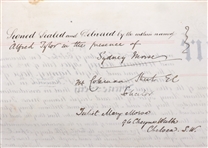 Signed Sealed and Delivered by the within named
Alfred Tylor in the presence of
Sydney Morse
Street EC
Juliet Mary Morse
96 Cheyne Walk
Chelsea S.W.